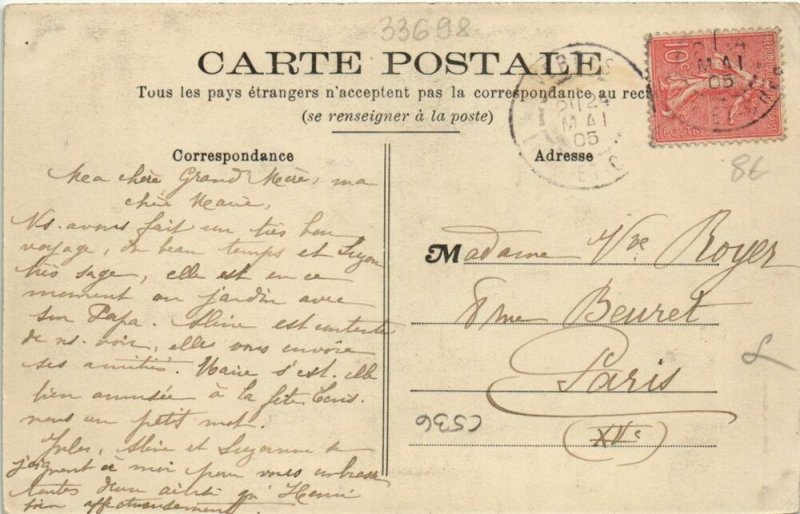 33698
CARTE POSTALE
Tous les pays étrangers n'acceptent pas la correspondance au rect
(se renseigner à la poste)
Correspondance
Adresse
10
MAI
05
24
MAI
05
86
Ma chère Grand Mère, ma
chère Marie,
Ns. avons fait un très bon
voyage, du beau temps et Suzon
très sage, elle est en ce
moment au jardin avec
son Papa. Aline est contente
de ns. voir, elles vous envoie
ses amitiés. Marie s'est-elle
bien amusée à la fête.
nous un petit mot.
Jules, Aline et Suzanne se
joignent à moi pour vous embrasser
toutes deux ainsi qu'Henri
bien affectueusement.
Madame Vve Royer
8 rue Beuret
Paris
(XVe)
C536